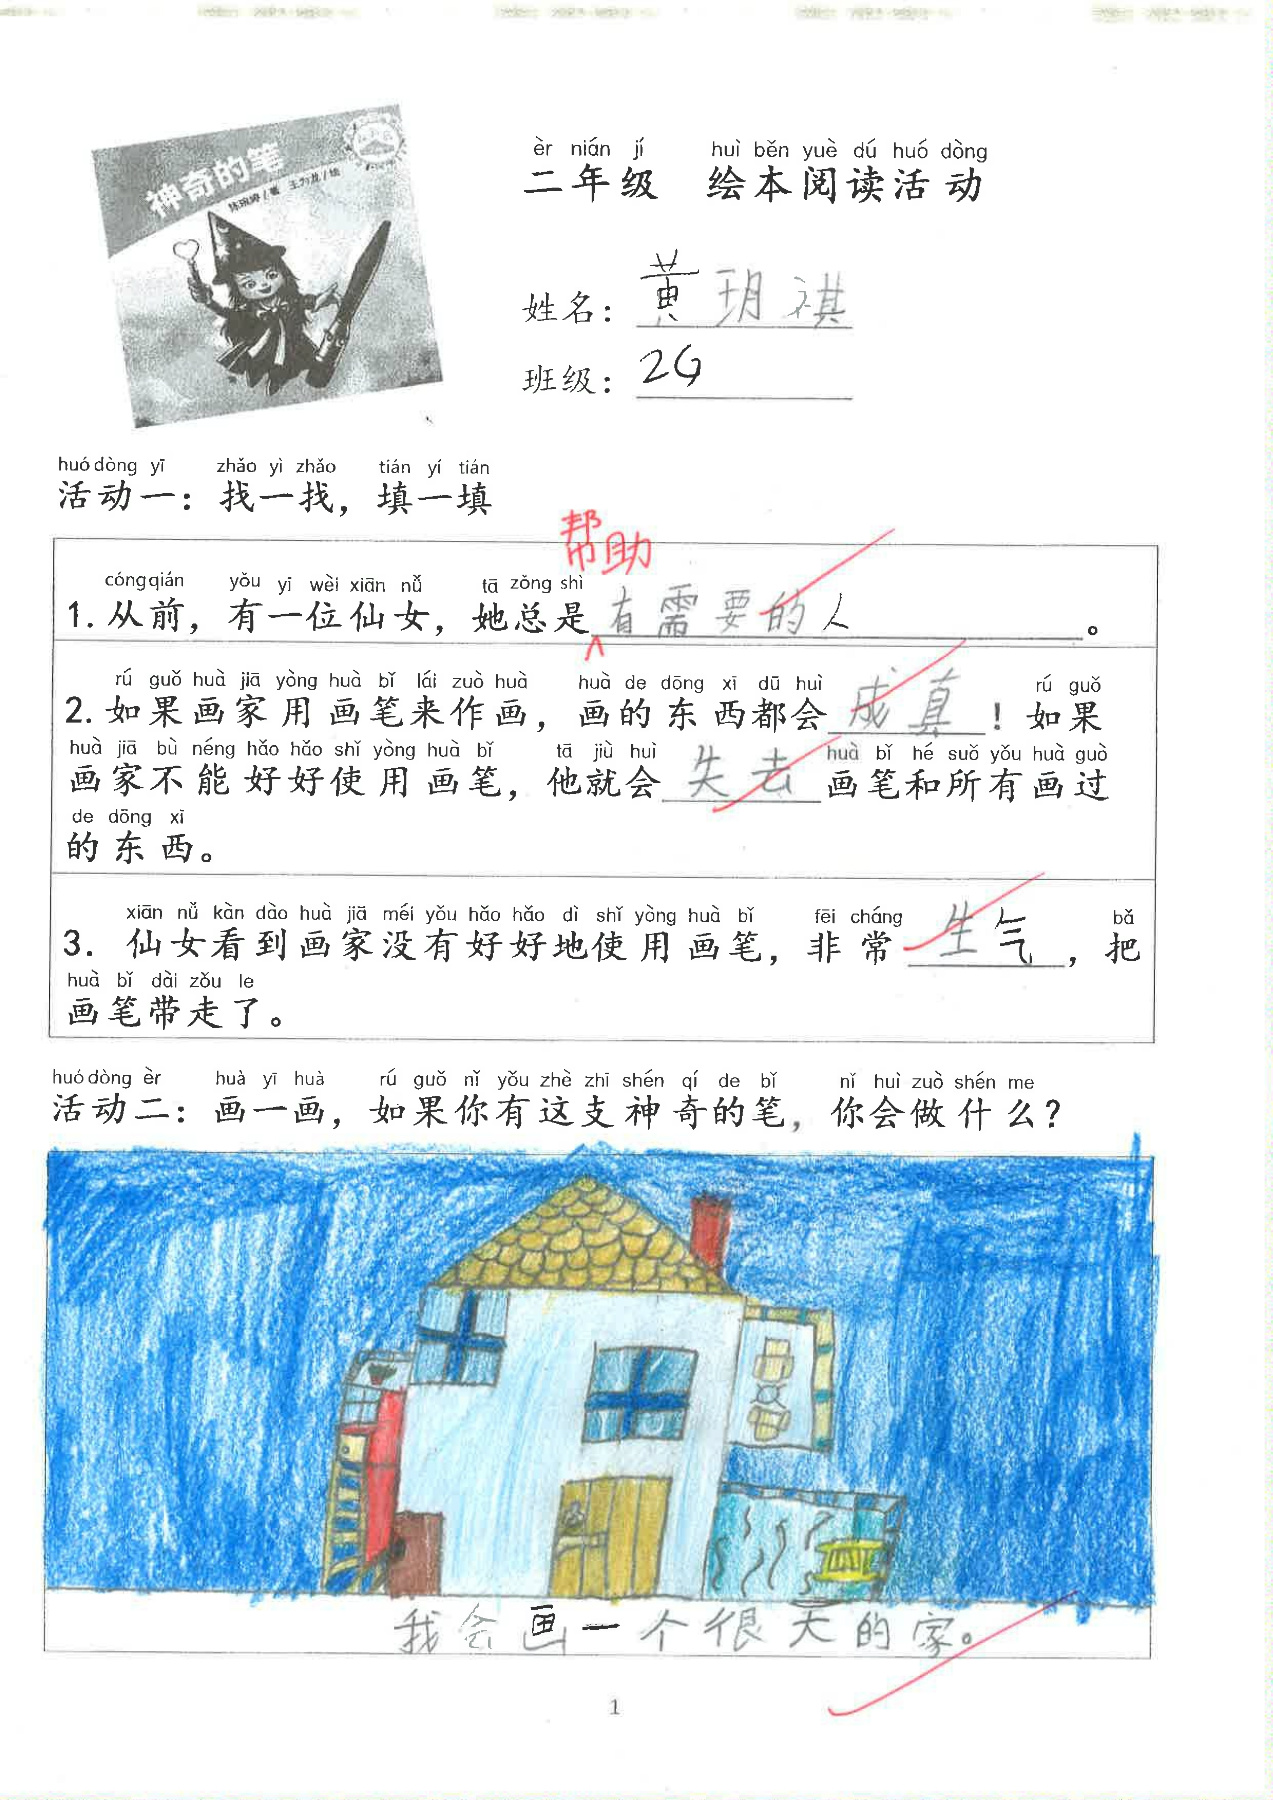 神奇的笔
èr nián jí huì běn yuè dú huó dòng
二年级 绘本阅读活动
姓名：黄玥祺
班级：2G
huó dòng yī zhǎo yì zhǎo tián yí tián
活动一：找一找，填一填
帮助
cóng qián yǒu yī wèi xiān nǚ tā zǒng shì
1. 从前，有一位仙女，她总是有需要的人。
rú guǒ huà jiā yòng huà bǐ lái zuò huà huà de dōng xi dū huì rú guǒ
2. 如果画家用画笔来作画，画的东西都会成真！如果
huà jiā bù néng hǎo hǎo shǐ yòng huà bǐ tā jiù huì huà bǐ hé suǒ yǒu huà guò
画家不能好好使用画笔，他就会失去画笔和所有画过
de dōng xi
的东西。
xiān nǚ kàn dào huà jiā méi yǒu hǎo hǎo dì shǐ yòng huà bǐ fēi cháng bǎ
3. 仙女看到画家没有好好地使用画笔，非常生气，把
huà bǐ dài zǒu le
画笔带走了。
huó dòng èr huà yī huà rú guǒ nǐ yǒu zhè zhī shén qí de bǐ nǐ huì zuò shén me
活动二：画一画，如果你有这支神奇的笔，你会做什么？
我会画一个很大的家。
1